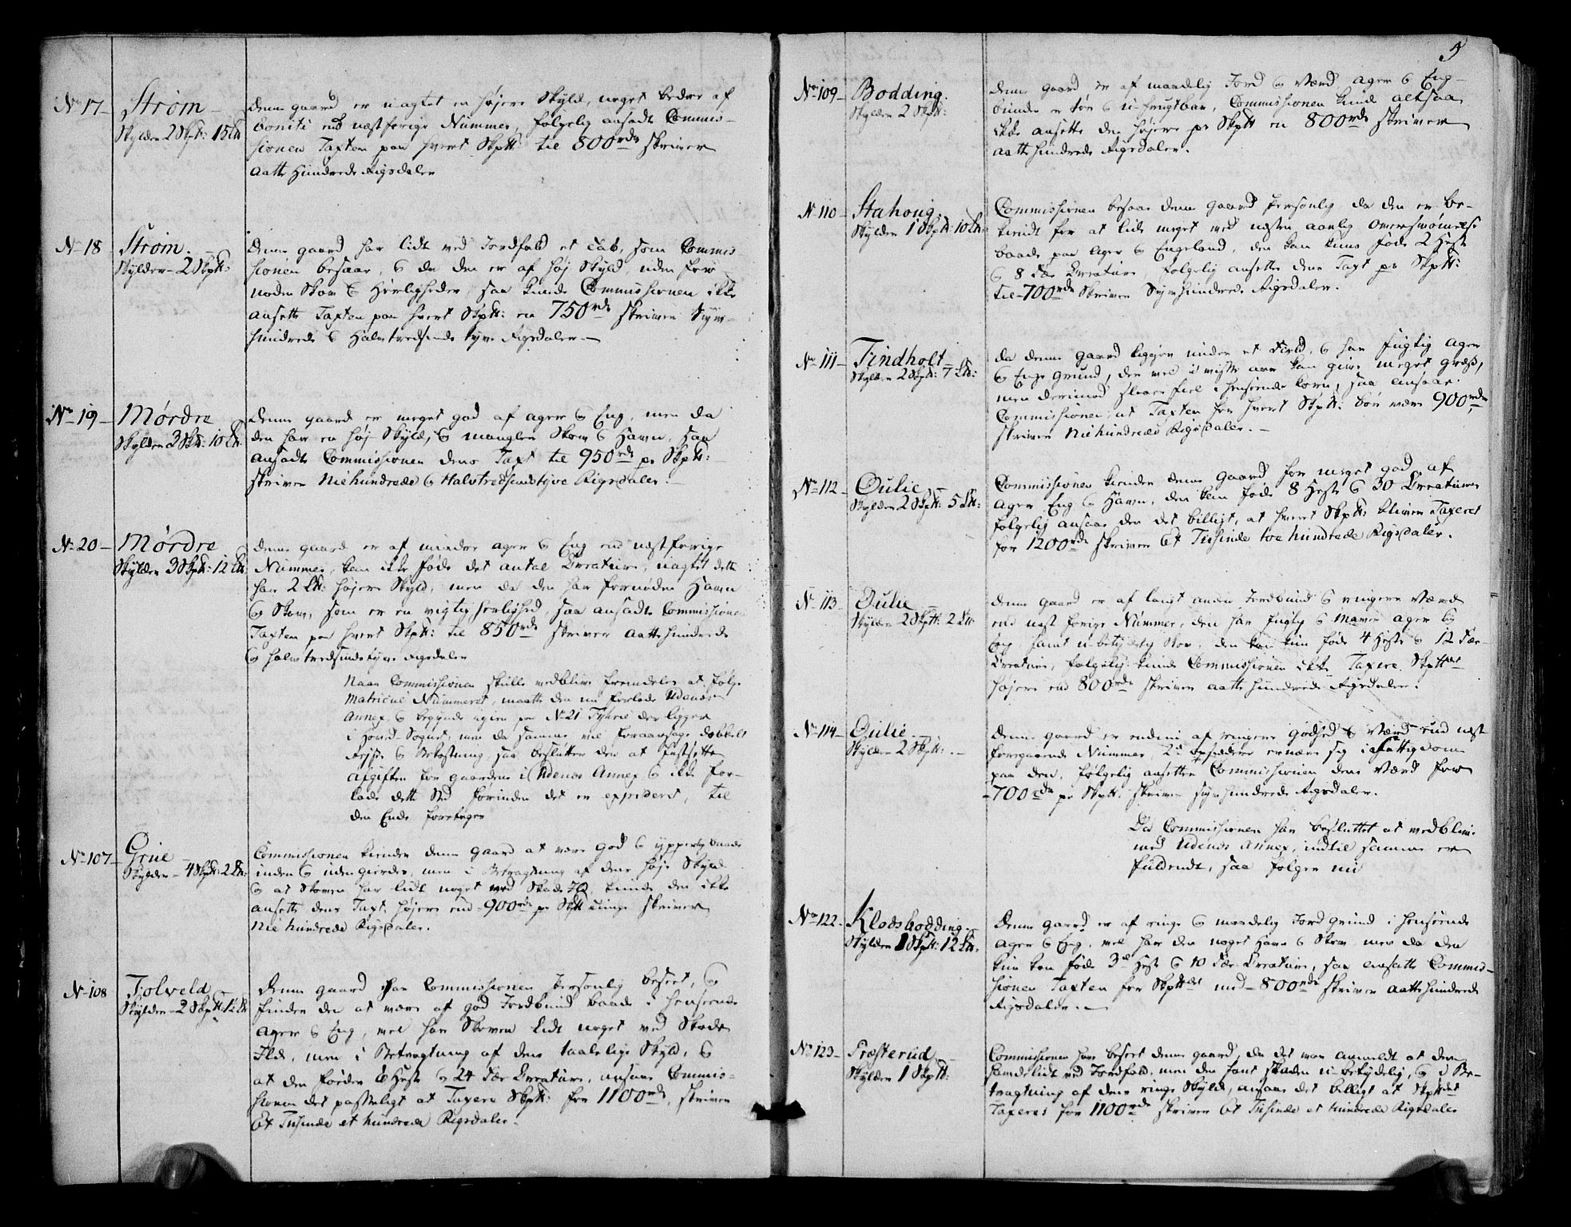 No 17 Strøm
Skylder 2 Skpt: 15 Lt
Denne gaard er uagtet en højere Skyld, noget bedre af
bonité end næstforige Nummer, følgelig ansadt Commis-
sionen Taxten paa hvert Skpt: til 800 rdr skriver
Aatte Hundrede Rigsdaler
No 18 Strøm.
Skylder 2 Skpt:
Denne gaard har lidt ved Jordfald et Tab, som Commis
sionen besaae, & da den er af høj Skyld, uden for-
nøden Skov & Herligheder, saa kunde Commissionen ikke
ansette Taxten paa hvert Skpt: en 750 rdr skriver Syv-
hundrede & Halvtredsindstyve Rigsdaler
No 19 Mørdre
Skylder 3 Skpt: 10 Lt
Denne gaard er meget god af ager & Eng, men da
den har en høj Skyld, & mangler Skov & Havn, saa
ansadte Commissionen dens Taxt til 950 rdr pr Skpt:
skriver Niehundrede & Halvtredsindstyve Rigsdaler.
No 20 Mørdre
Skylder 3 Skpt: 12 Lt
Denne gaard er af mindre ager & Eng end næstforige
Nummer, kan ikke føde det antal Creature, uagtet dette
har 2 Lt: højere Skyld, men da den har fornøden Havn
& Skov, som er en vigtig herlighed, saa ansadte Commissionen
Taxten paa hvert Skpt: til 850 rdr skriver aattehundrede
& halvtredsindstyve Rigsdaler
Naar Commissionen skulle vedblive fremdeles at følge
Matricul Nummeret, maatte den nu forlade Udenæs
Annex & begynde igien paa No 21 som ligger
i Hoved Sognet, men da samme vil foraarsage dobbelt
Rejse & Bekostning, saa beslutter den at fastsette
Afgiften for gaardene i Udenæs Annex & ikke for-
lade dette Sted forinden det er expederet, til
den Ende foretages
No 107 Grue
Skylder 4 Skpt: 2 Lt:
Commissionen kiender denne gaard at være god & ypperlig baade
inden & uden gierdes, men i Betragtning af dens høje Skyld
& at Skoven har lidt noget ved Skade Ild, kunde den ikke
ansette dens Taxt højere end 900 rdr pr Skpt skriver
Nie hundrede Rigsdaler.
No 108 Folveld
Skylder 2 Skpt 12 Lt
Denne gaard har Commissionen personlig beseet, &
finder den at være af god Jordbund baade i henseende
Ager & Eng, vel har Skoven lidt noget ved Skade
Ild, men i Betragtning af dens taalelige Skyld, &
at den føder 6 Heste & 24 Fæ Creature, ansaae Commis-
sionen det passeligt at Taxere Skpt: for 1100 rdr, skriver
Et Tusinde et hundrede Rigsdaler.
No 109 Bodding.
Skylder 2 Skpt:
Denne gaard er af maadelig Jord & Værd, ager & Eng
bunde er tør & u-frugtbar, Commissionen kunde altsaa
ikke ansette den højere pr Skpt en 800 rdr skriver
Aatte hundrede Rigsdaler.
No 110 Stahoug
Skylder 1 Skpt: 10 Lt
Commissionen besaae denne gaard personlig da den er be-
kiendt for at lide meget ved næsten aarlig Oversvømmelse
baade paa Ager & Engeland, den kan kuns føde 2 Heste
& 8 Fæe Creature, følgelig ansettes dens Taxt pr Skpt:
til 700 rdr skriver Syvhundrede Rigsdaler.
No 111 Tindholt
Skylder 2 Skpt: 7 Lt:
da denne gaard ligger under et Field, & har fugtig ager
& Enge grund, den vel i visse aar kan give meget græs,
men derimod slaaer fiel i henseende korn, saa ansaae
Commissionen at Taxten for hvert Skpt: bør være 900 rdr
skriver Niehundrede Rigsdaler.
No 112 Oulie
Skylder 2 Skpt: 5 Lt:
Commissionen kiender denne gaard for meget god af
ager Eng & Havn, den kan føde 8 Heste & 30 Creature
følgelig ansaae den det billigt, at hvert Skpt: bliver Taxeret
for 1200 rdr skriver Et Tusinde toe hundrede Rigsdaler.
No 113 Oulie
Skylder 2 Skpt: 2 Lt
Denne gaard er af langt anden Jordbund & ringere Værd
end næst forige Nummer, den har fugtig & mager ager &
Eng samt ubetydelig Skov, den kan kun føde 4 Heste & 12 Fæe-
Creature, følgelig kunde Commissionen ikke Taxere Skpt
højere end 800 rdr skriver aatte hundrede Rigsdaler.
No 114 Oulie
Skylder 2 Skpt:
Denne gaard er endnu af ringere godhed & Værd end næst
foregaaende Nummer, 2de besiddere ernærer sig i fattigdom
paa den, følgelig ansetter Commissionen dens Værd for
700 rdr pr Skpt: skriver syvhundrede Rigsdaler.
Da Commissionen har besluttet at vedblive
med Udenæs Annex, indtil samme er
fuldendt, saa følger nu
No 122 Klodsbodding
Skylder 1 Skpt: 12 Lt.
Denne gaard er af ringe & maadelig Jord grund i henseende
Ager & Eng, vel har den noget Havn & Skov men da den
kun kan føde 3 Heste & 10 Fæe Creature, saa ansatte Commis-
sionen Taxten for Skpt med 800 rdr skriver aatte hundrede
Rigsdaler.
No 123 Præsterud
Skylder 1 Skpt:
Commissionen har beseet denne gaard, da det var anmeldt at den
havde lidt ved Jordfald, men den fant skaden u-betydelig, & i Be-
tragtning af dens ringe Skyld, ansaae det billigt at Skpt
Taxeres for 1100 rdr skriver Et Tusinde et hundrede Rigsdaler